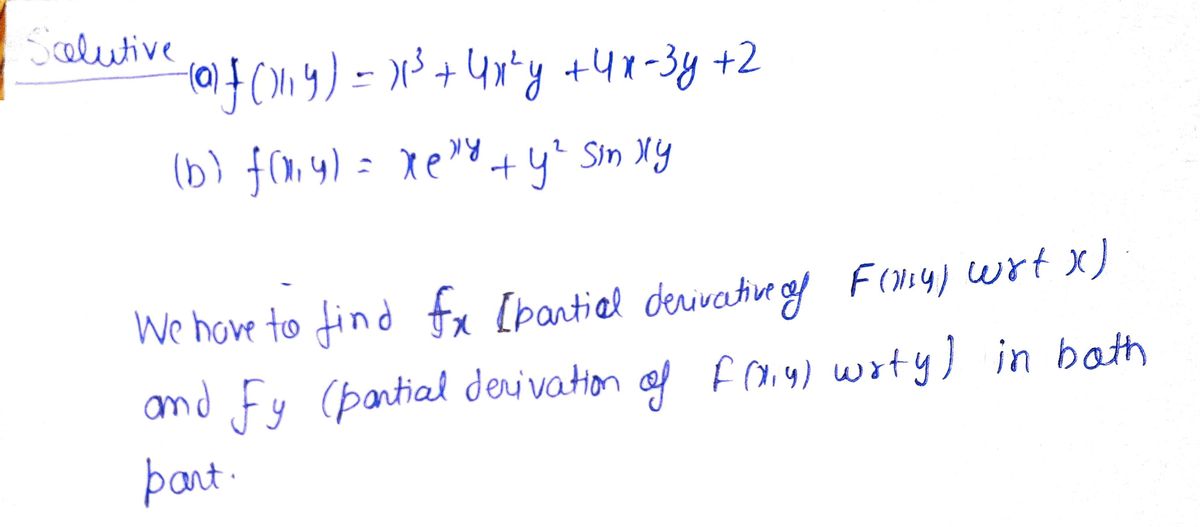 Soolutive (a) f(x,y) = x³ + 4x²y + 4x - 3y + 2
(b) f(x,y) = xe^xy + y² sin xy
We have to find fx [partial derivative of F(x,y) wrt x)
and Fy (partial derivation of f(x,y) wrt y) in both
part.